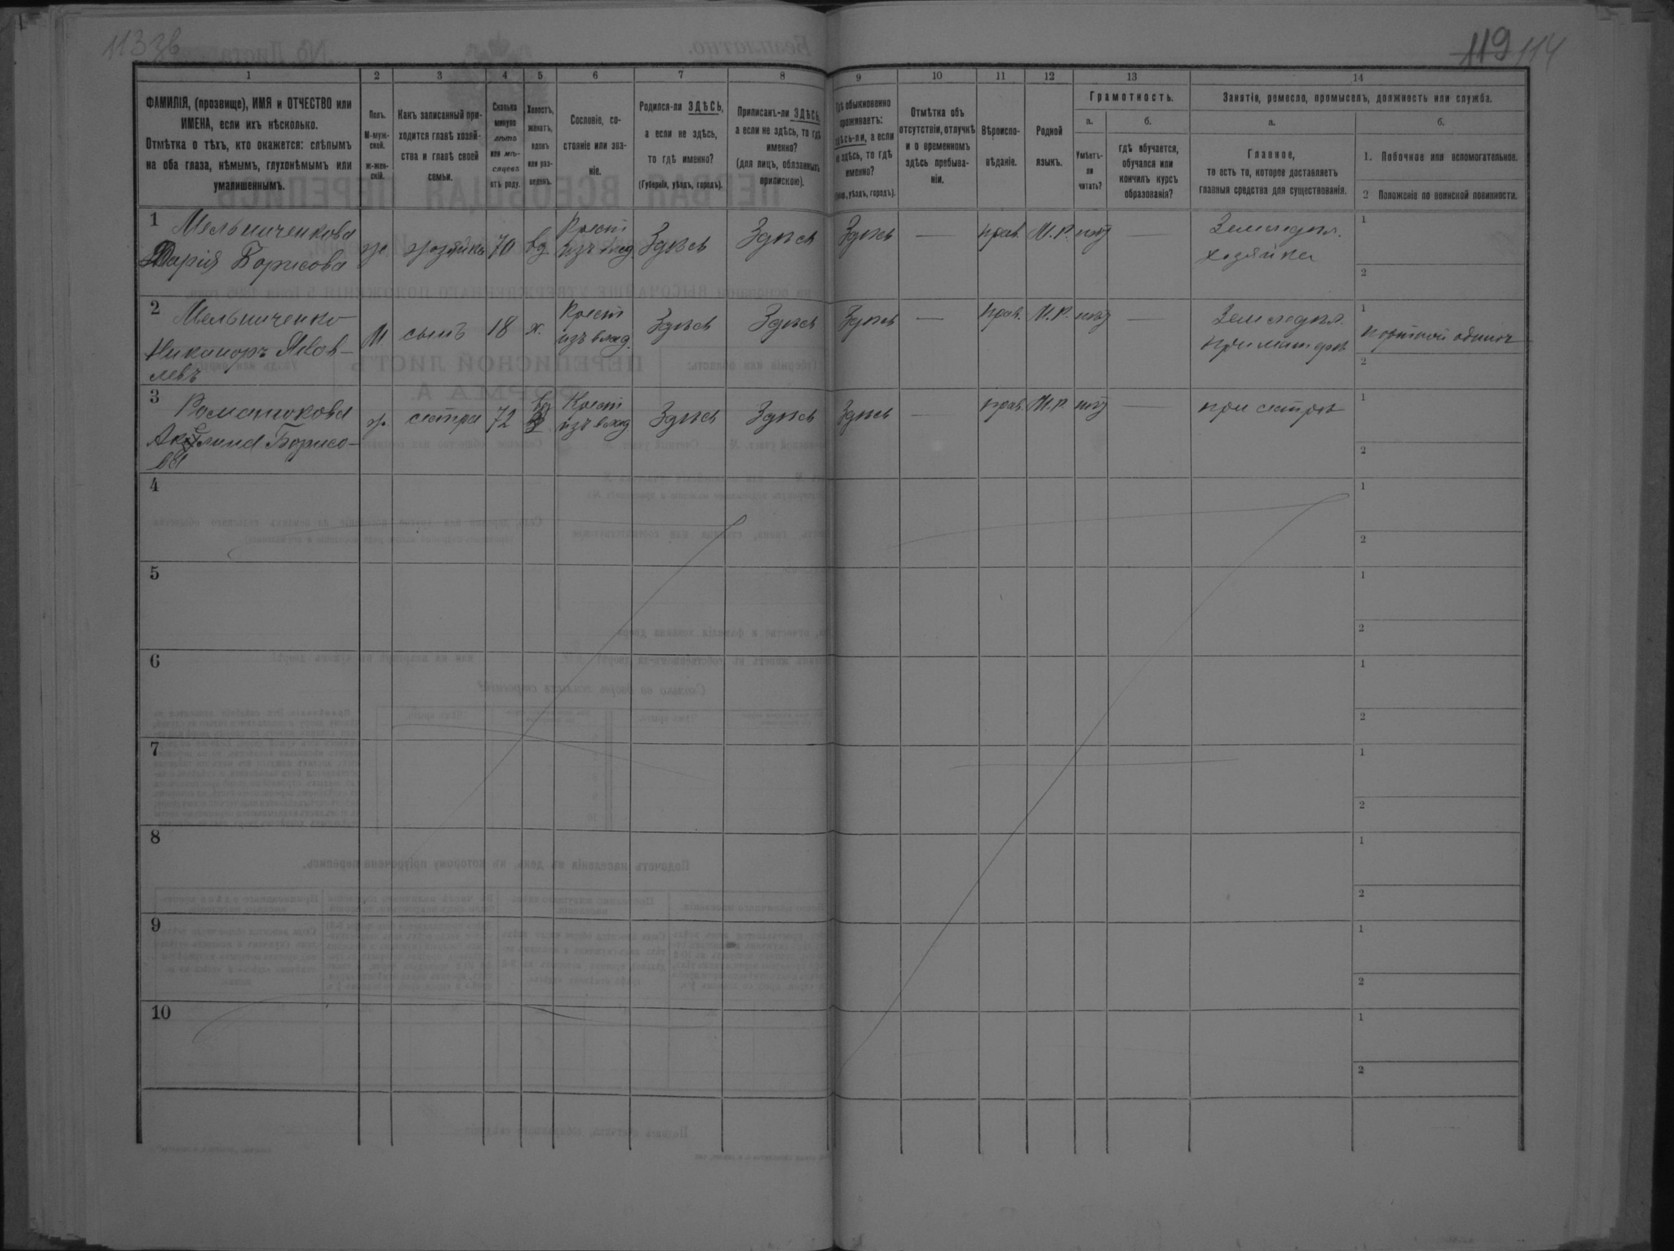 113 зв
119 114
1
2
3
4
5
6
7
8
9
10
11
12
13
14
ФАМИЛІЯ, (прозвище), ИМЯ и ОТЧЕСТВО или
ИМЕНА, если ихъ нѣсколько.
Отмѣтка о тѣхъ, кто окажется: слѣпымъ
на оба глаза, нѣмымъ, глухонѣмымъ или
умалишеннымъ.
Полъ.
М-муж-
ской.
ж-жен-
скій.
Какъ записанный при-
ходится главѣ хозяй-
ства и главѣ своей
семьи.
Сколько
минуло
лѣтъ
или мѣ-
сяцевъ
отъ роду.
Холостъ,
женатъ,
вдовъ
или раз-
веденъ.
Сословіе, со-
стояніе или зва-
ніе.
Родился-ли ЗДѢСЬ,
а если не здѣсь,
то гдѣ именно?
(Губернія, уѣздъ, городъ).
Приписанъ-ли ЗДѢСЬ,
а если не здѣсь, то гдѣ
именно?
(для лицъ, обязанныхъ
припискою).
Гдѣ обыкновенно
проживаетъ:
здѣсь-ли, а если
не здѣсь, то гдѣ
именно?
(Губ., уѣздъ, городъ).
Отмѣтка объ
отсутствіи, отлучкѣ
и о временномъ
здѣсь пребыва-
ніи.
Вѣроиспо-
вѣданіе.
Родной
языкъ.
Грамотность.
а.
б.
Умѣетъ-
ли
читать?
гдѣ обучается,
обучался или
кончилъ курсъ
образованія?
Занятія, ремесло, промыселъ, должность или служба.
а.
б.
Главное,
то есть то, которое доставляетъ
главныя средства для существованія.
1. Побочное или вспомогательное.
2 Положеніе по воинской повинности.
1
Мельниченкова
Дарія Борисова
ж
хозяйка
70
вд
Крест
изъ влад
Здѣсь
Здѣсь
Здѣсь
—
прав.
М.Р.
нѣт
—
Земледѣл.
хозяйка
1
2
2
Мельниченко
Никаноръ Яков-
левъ
М
сынъ
18
х.
Крест
изъ влад.
Здѣсь
Здѣсь
Здѣсь
—
прав.
М.Р.
нѣт
—
Земледѣл.
при матерѣ
1
2
3
Акулина Борисо-
ва
ж.
сестра
72
вд
Крест
изъ влад
Здѣсь
Здѣсь
Здѣсь
—
прав.
М.Р.
нѣт
—
при сестрѣ
1
2
4
1
2
5
1
2
6
1
2
7
1
2
8
1
2
9
1
2
10
1
2